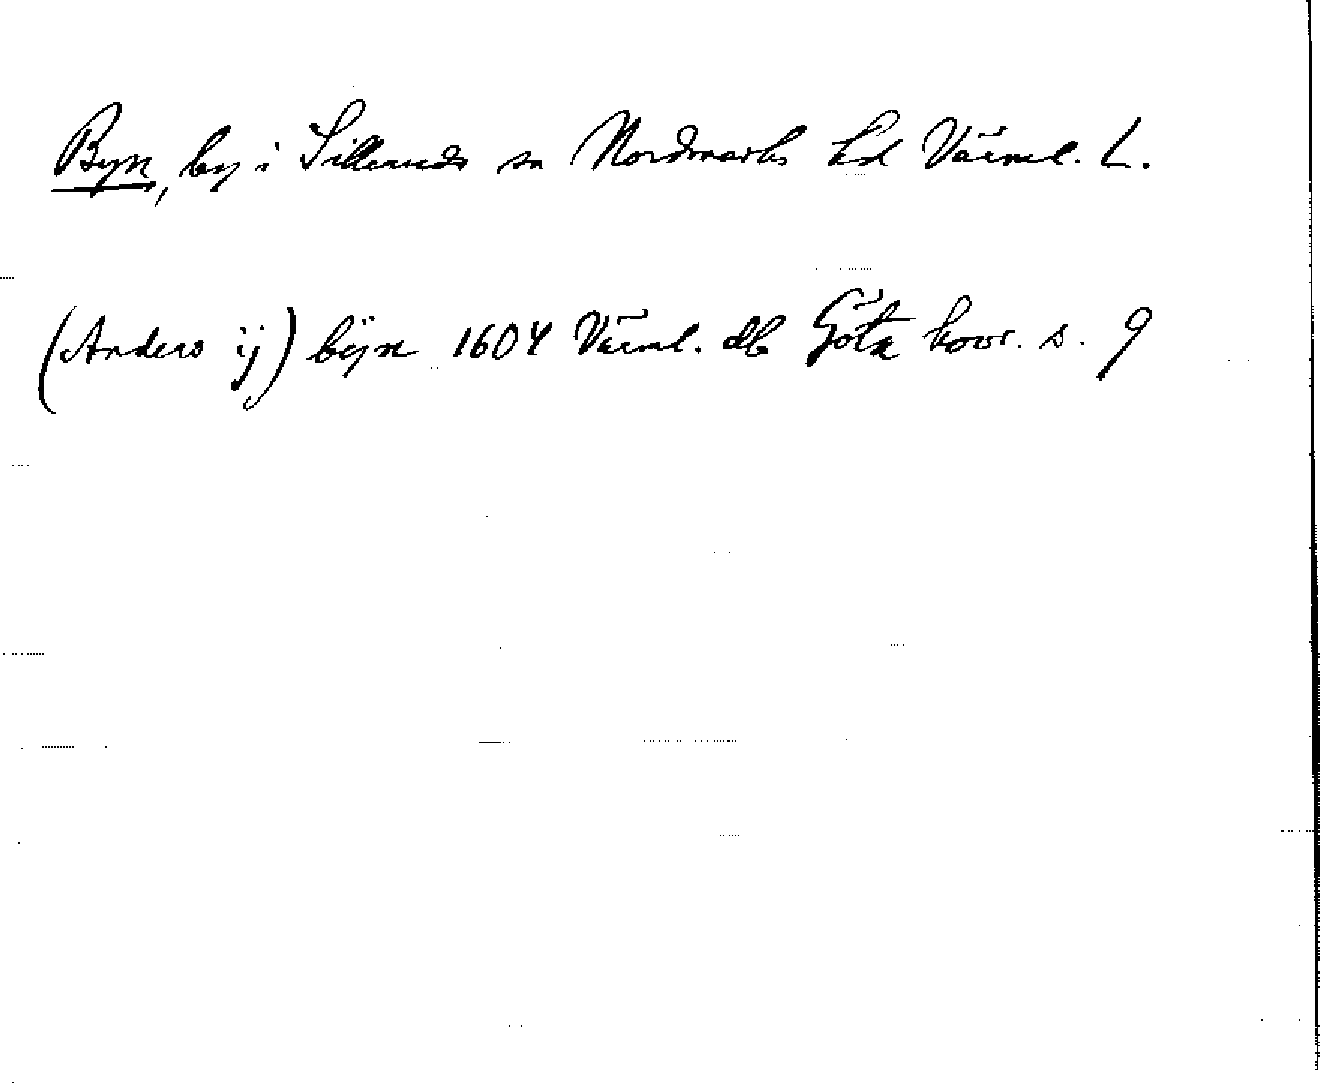 Byn, by i Silleruds sn Nordmarks hd Värml. L.
(Anders ij) bijn 1604 Värml. db Göta hovr. s. 9